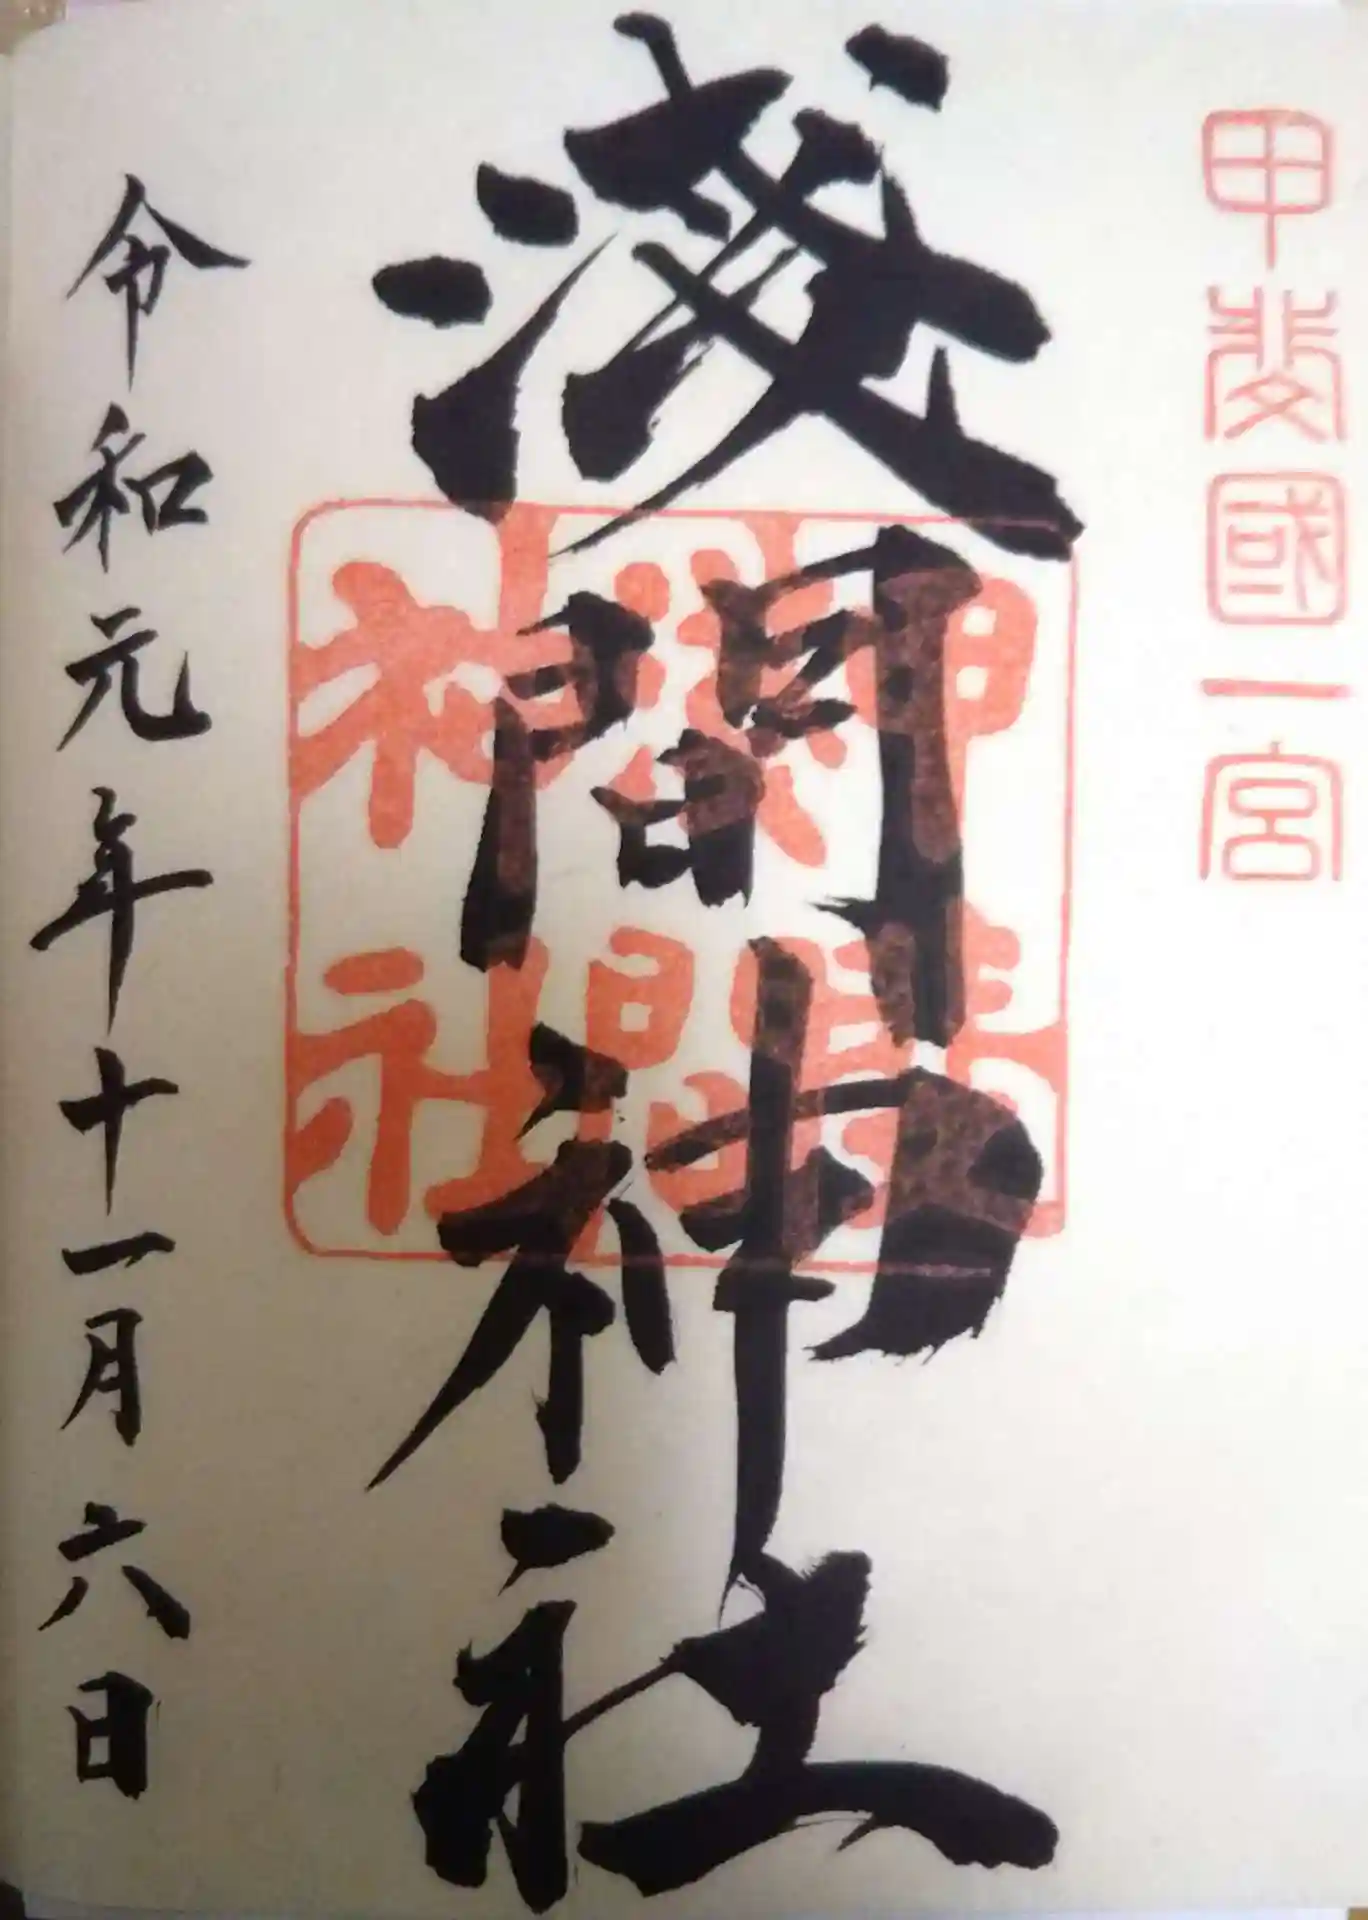 甲斐國一宮
淺間神社
令和元年十一月六日